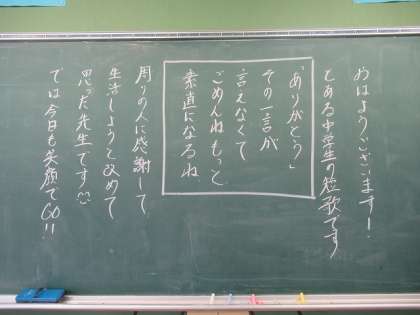 おはようございます！
とある中学生の短歌です
「ありがとう」
その一言が
言えなくて
ごめんねもっと
素直になるね
周りの人に感謝して
生活しようと改めて
思った先生です☺
では今日も笑顔でGO!!